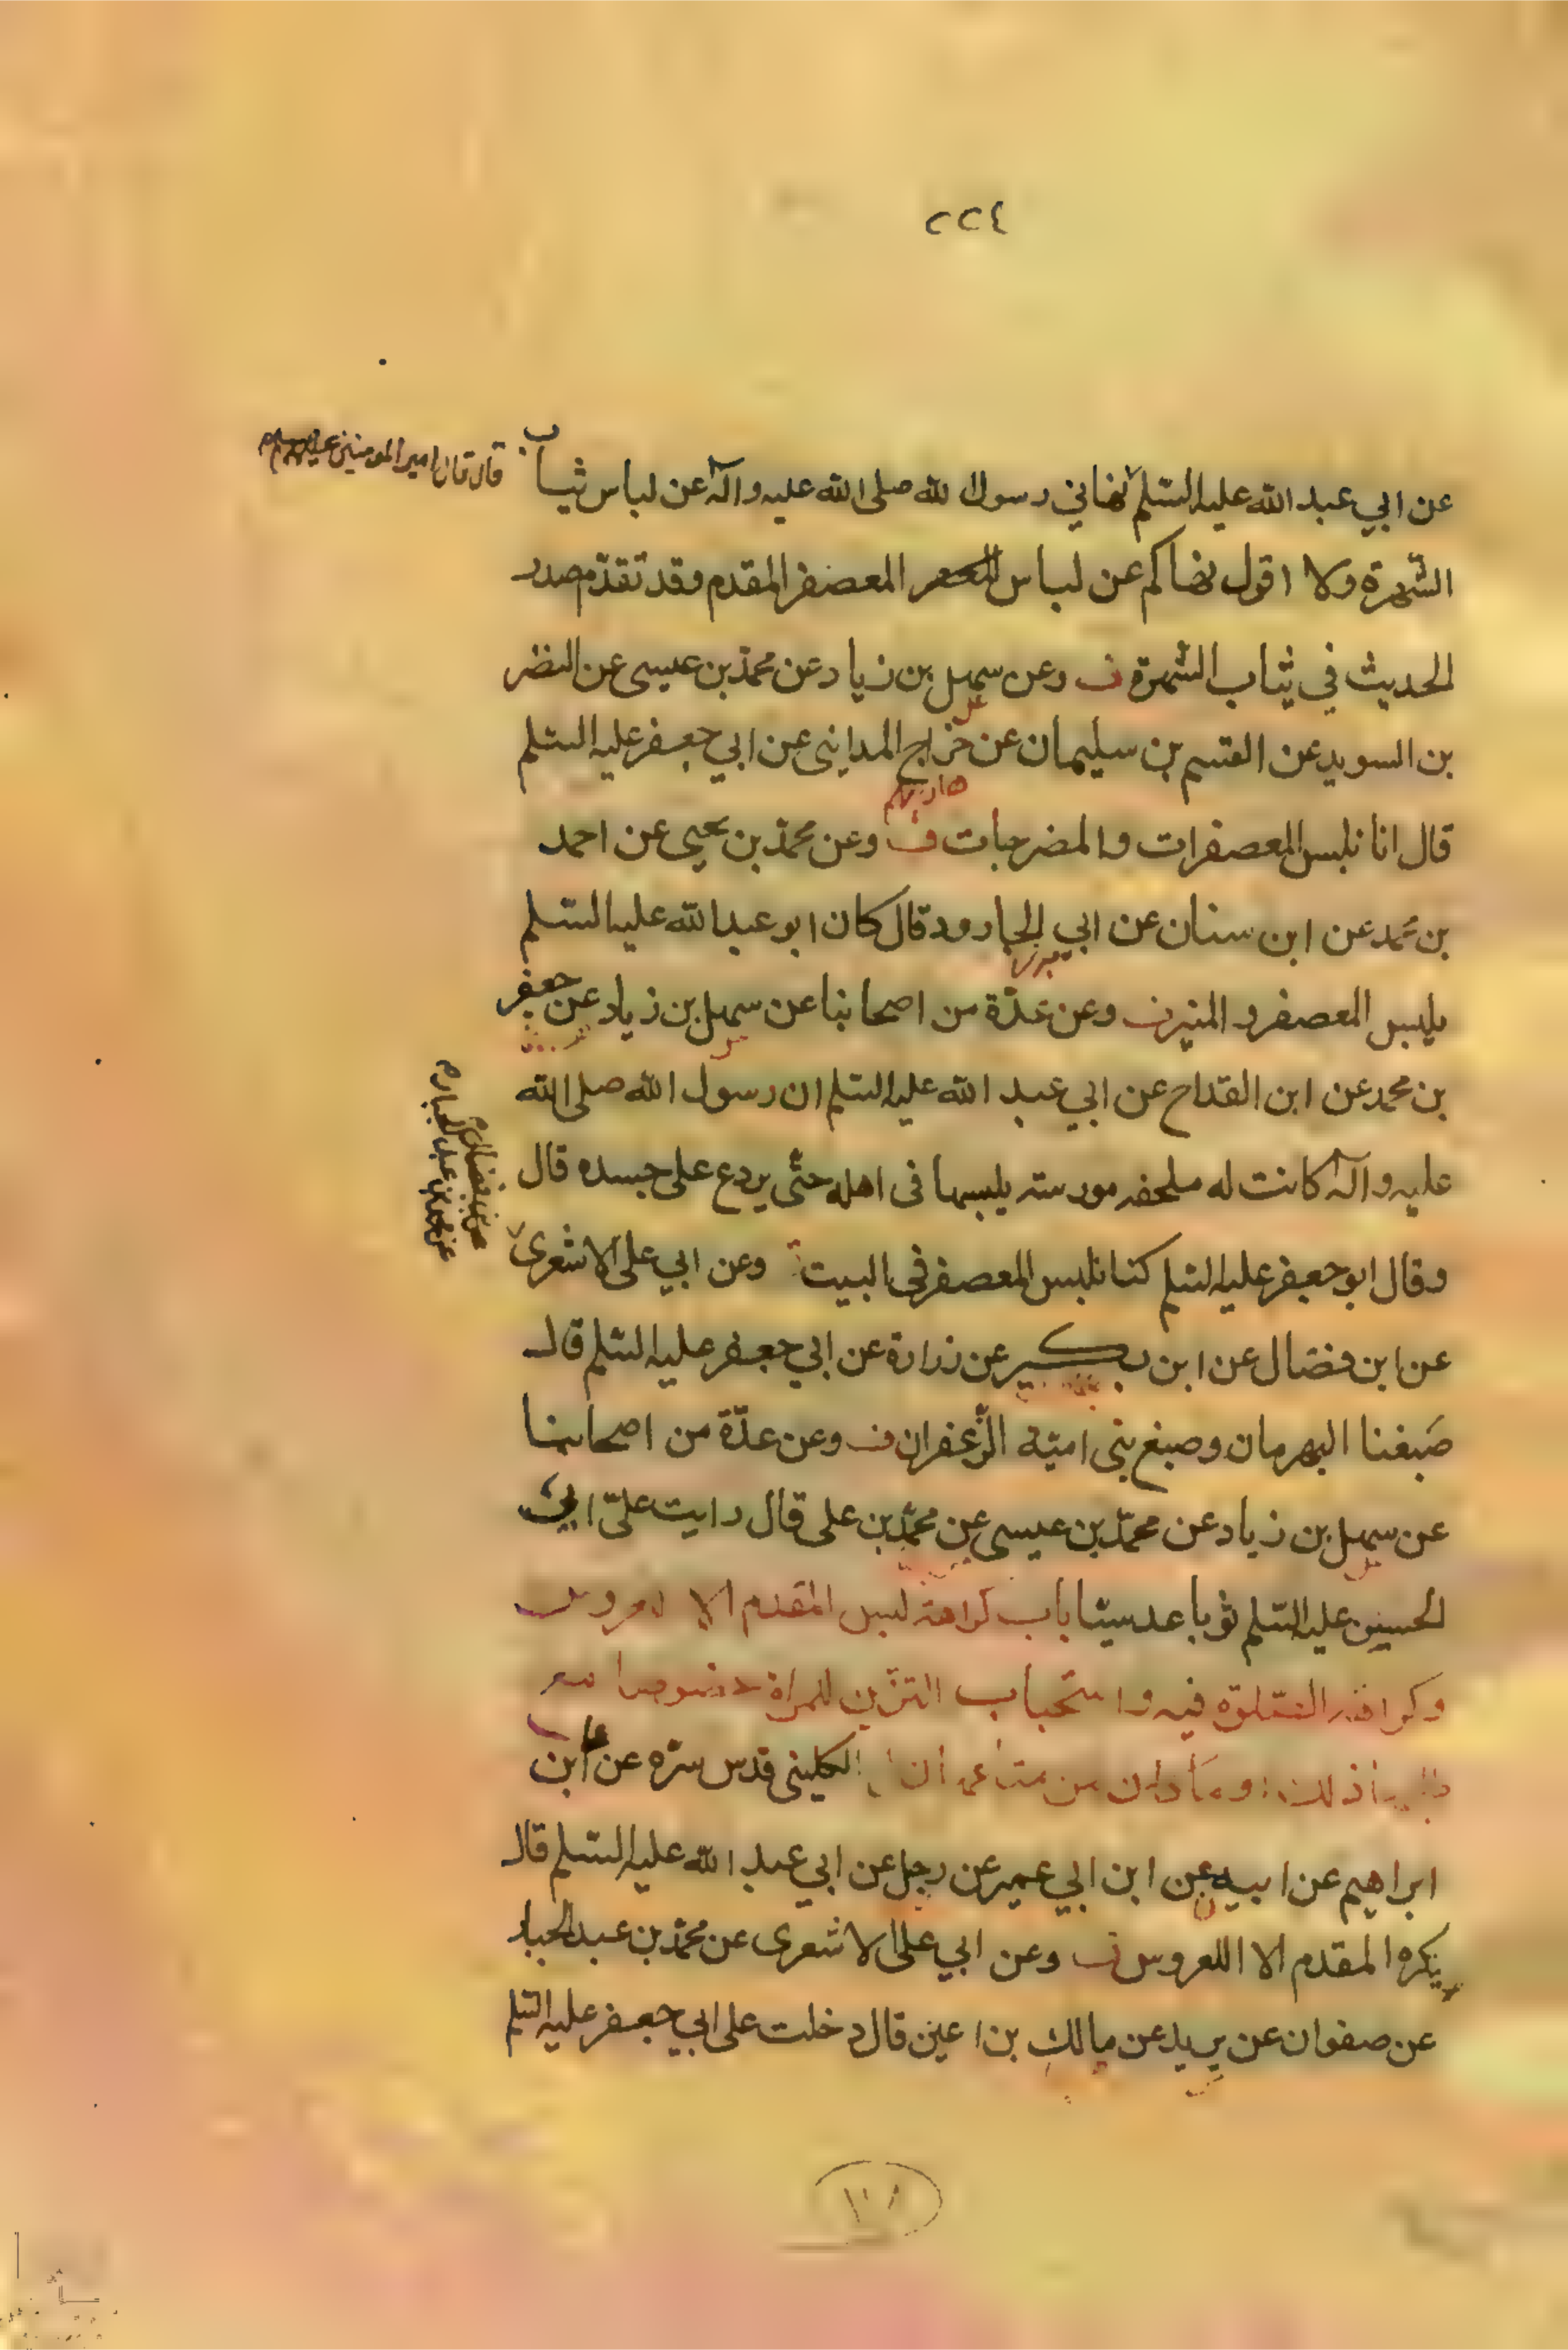 ٢٢٤
قال قال امير المومنين عليه السلم
عن ابي عبد الله عليه السلم نهاني رسول الله صلى الله عليه واله عن لباس ثياب
الشهرة ولا اقول نهاكم عن لباس المعصفر المقدم وقد تقدم صدر
الحديث في ثياب الشهرة ف وعن سهل بن زياد عن محمد بن عيسى عن النضر
بن السويد عن القسم بن سليمان عن جراح المدايني عن ابي جعفر عليه السلم
قال انا نلبس المعصفرات والمضرجات ف وعن محمد بن يحيى عن احمد
بن محمد عن ابن سنان عن ابي الجارود قال كان ابو عبد الله عليه السلم
يلبس المعصفر و المنير ف وعن عدّة من اصحابنا عن سهل بن زياد عن جعفر
بن محمد عن ابن القداح عن ابي عبد الله عليه السلم ان رسول الله صلى الله
عليه وآله كانت له ملحفه مورسته يلبسها في اهله حتّى يردع على جسده قال
وقال ابو جعفر عليه السلم كنا نلبس المعصفر في البيت وعن ابي على الاشعرى
عن محمد بن عبد الجبار
عن ابن فضال عن ابن بكير عن زرارة عن ابي جعفر عليه السلم قال
صَبغنا البهرمان وصبغ بنى اميّة الزّعفران ف وعن عدّة من اصحابنا
عن سهل بن زياد عن محمّد بن عيسى عن محمّد بن على قال رايت على ابي
الحسين عليه السّلم ثوبا عدسيّا باب كراهة لبس المقدم الا لعروس
وكراهة الصّلوة فيه واستحباب التزيّن للمراة خصوصا
الكليني قدس سرّه عن على بن
ابراهيم عن ابيه عن ابن ابي عمير عن رجل عن ابي عبد الله عليه السلم قال
يكره المقدم الا اللعروس ف وعن ابي على الاشعرى عن محمّد بن عبد الجبار
عن صفوان عن بريد عن مالك بن اعين قال دخلت على ابي جعفر عليه السّلم